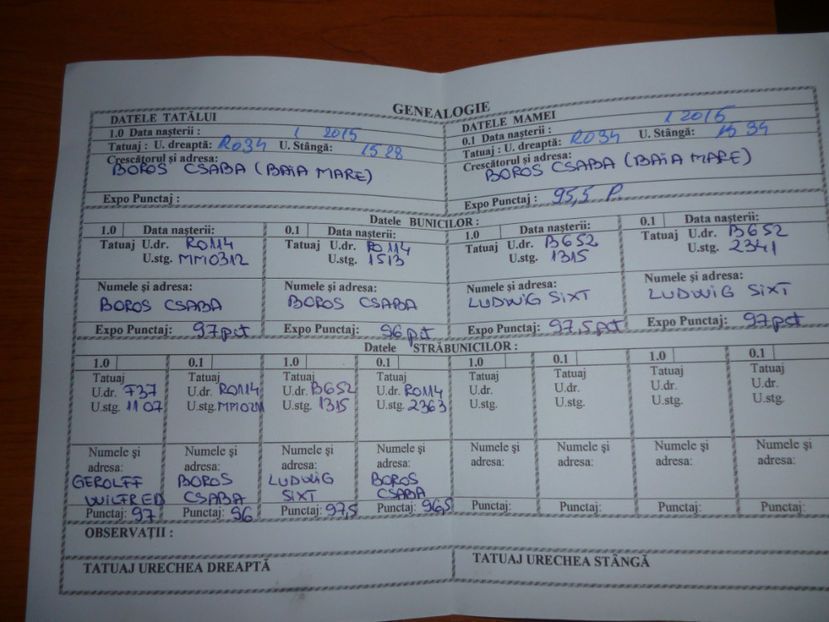 GENEALOGIE
DATELE TATĂLUI
1.0 Data nașterii : 1 2015
Tatuaj : U. dreaptă: RO34 U. Stângă: 1528
Crescătorul și adresa:
BOROS CSABA (BAIA MARE)
Expo Punctaj :
DATELE MAMEI
0.1 Data nașterii : 1 2015
Tatuaj : U. dreaptă: RO34 U. Stângă: 1534
Crescătorul și adresa:
BOROS CSABA (BAIA MARE)
Expo Punctaj : 95,5 P.
Datele BUNICILOR :
1.0 Data nașterii:
Tatuaj U.dr. RO114
U.stg. MM0312
Numele și adresa:
BOROS CSABA
Expo Punctaj: 97pct
0.1 Data nașterii:
Tatuaj U.dr. RO114
U.stg. 1513
Numele și adresa:
BOROS CSABA
Expo Punctaj: 96pct
1.0 Data nașterii:
Tatuaj U.dr. B652
U.stg. 1315
Numele și adresa:
LUDWIG SIXT
Expo Punctaj: 97,5pct
0.1 Data nașterii:
Tatuaj U.dr. B652
U.stg. 2341
Numele și adresa:
LUDWIG SIXT
Expo Punctaj: 97pct
Datele STRĂBUNICILOR :
1.0
Tatuaj
U.dr. F37
U.stg. 1107
Numele și
adresa:
GEROLFF
WILFRED
Punctaj: 97
0.1
Tatuaj
U.dr. RO114
U.stg.
Numele și
adresa:
BOROS
CSABA
Punctaj: 96
1.0
Tatuaj
U.dr. B652
U.stg. 1315
Numele și
adresa:
LUDWIG
SIXT
Punctaj: 97,5
0.1
Tatuaj
U.dr. RO114
U.stg. 2363
Numele și
adresa:
BOROS
CSABA
Punctaj: 96,5
1.0
Tatuaj
U.dr.
U.stg.
Numele și
adresa:
Punctaj:
0.1
Tatuaj
U.dr.
U.stg.
Numele și
adresa:
Punctaj:
1.0
Tatuaj
U.dr.
U.stg.
Numele și
adresa:
Punctaj:
0.1
Tatuaj
U.dr.
U.stg.
Numele și
adresa:
Punctaj:
OBSERVAȚII :
TATUAJ URECHEA DREAPTĂ
TATUAJ URECHEA STÂNGĂ